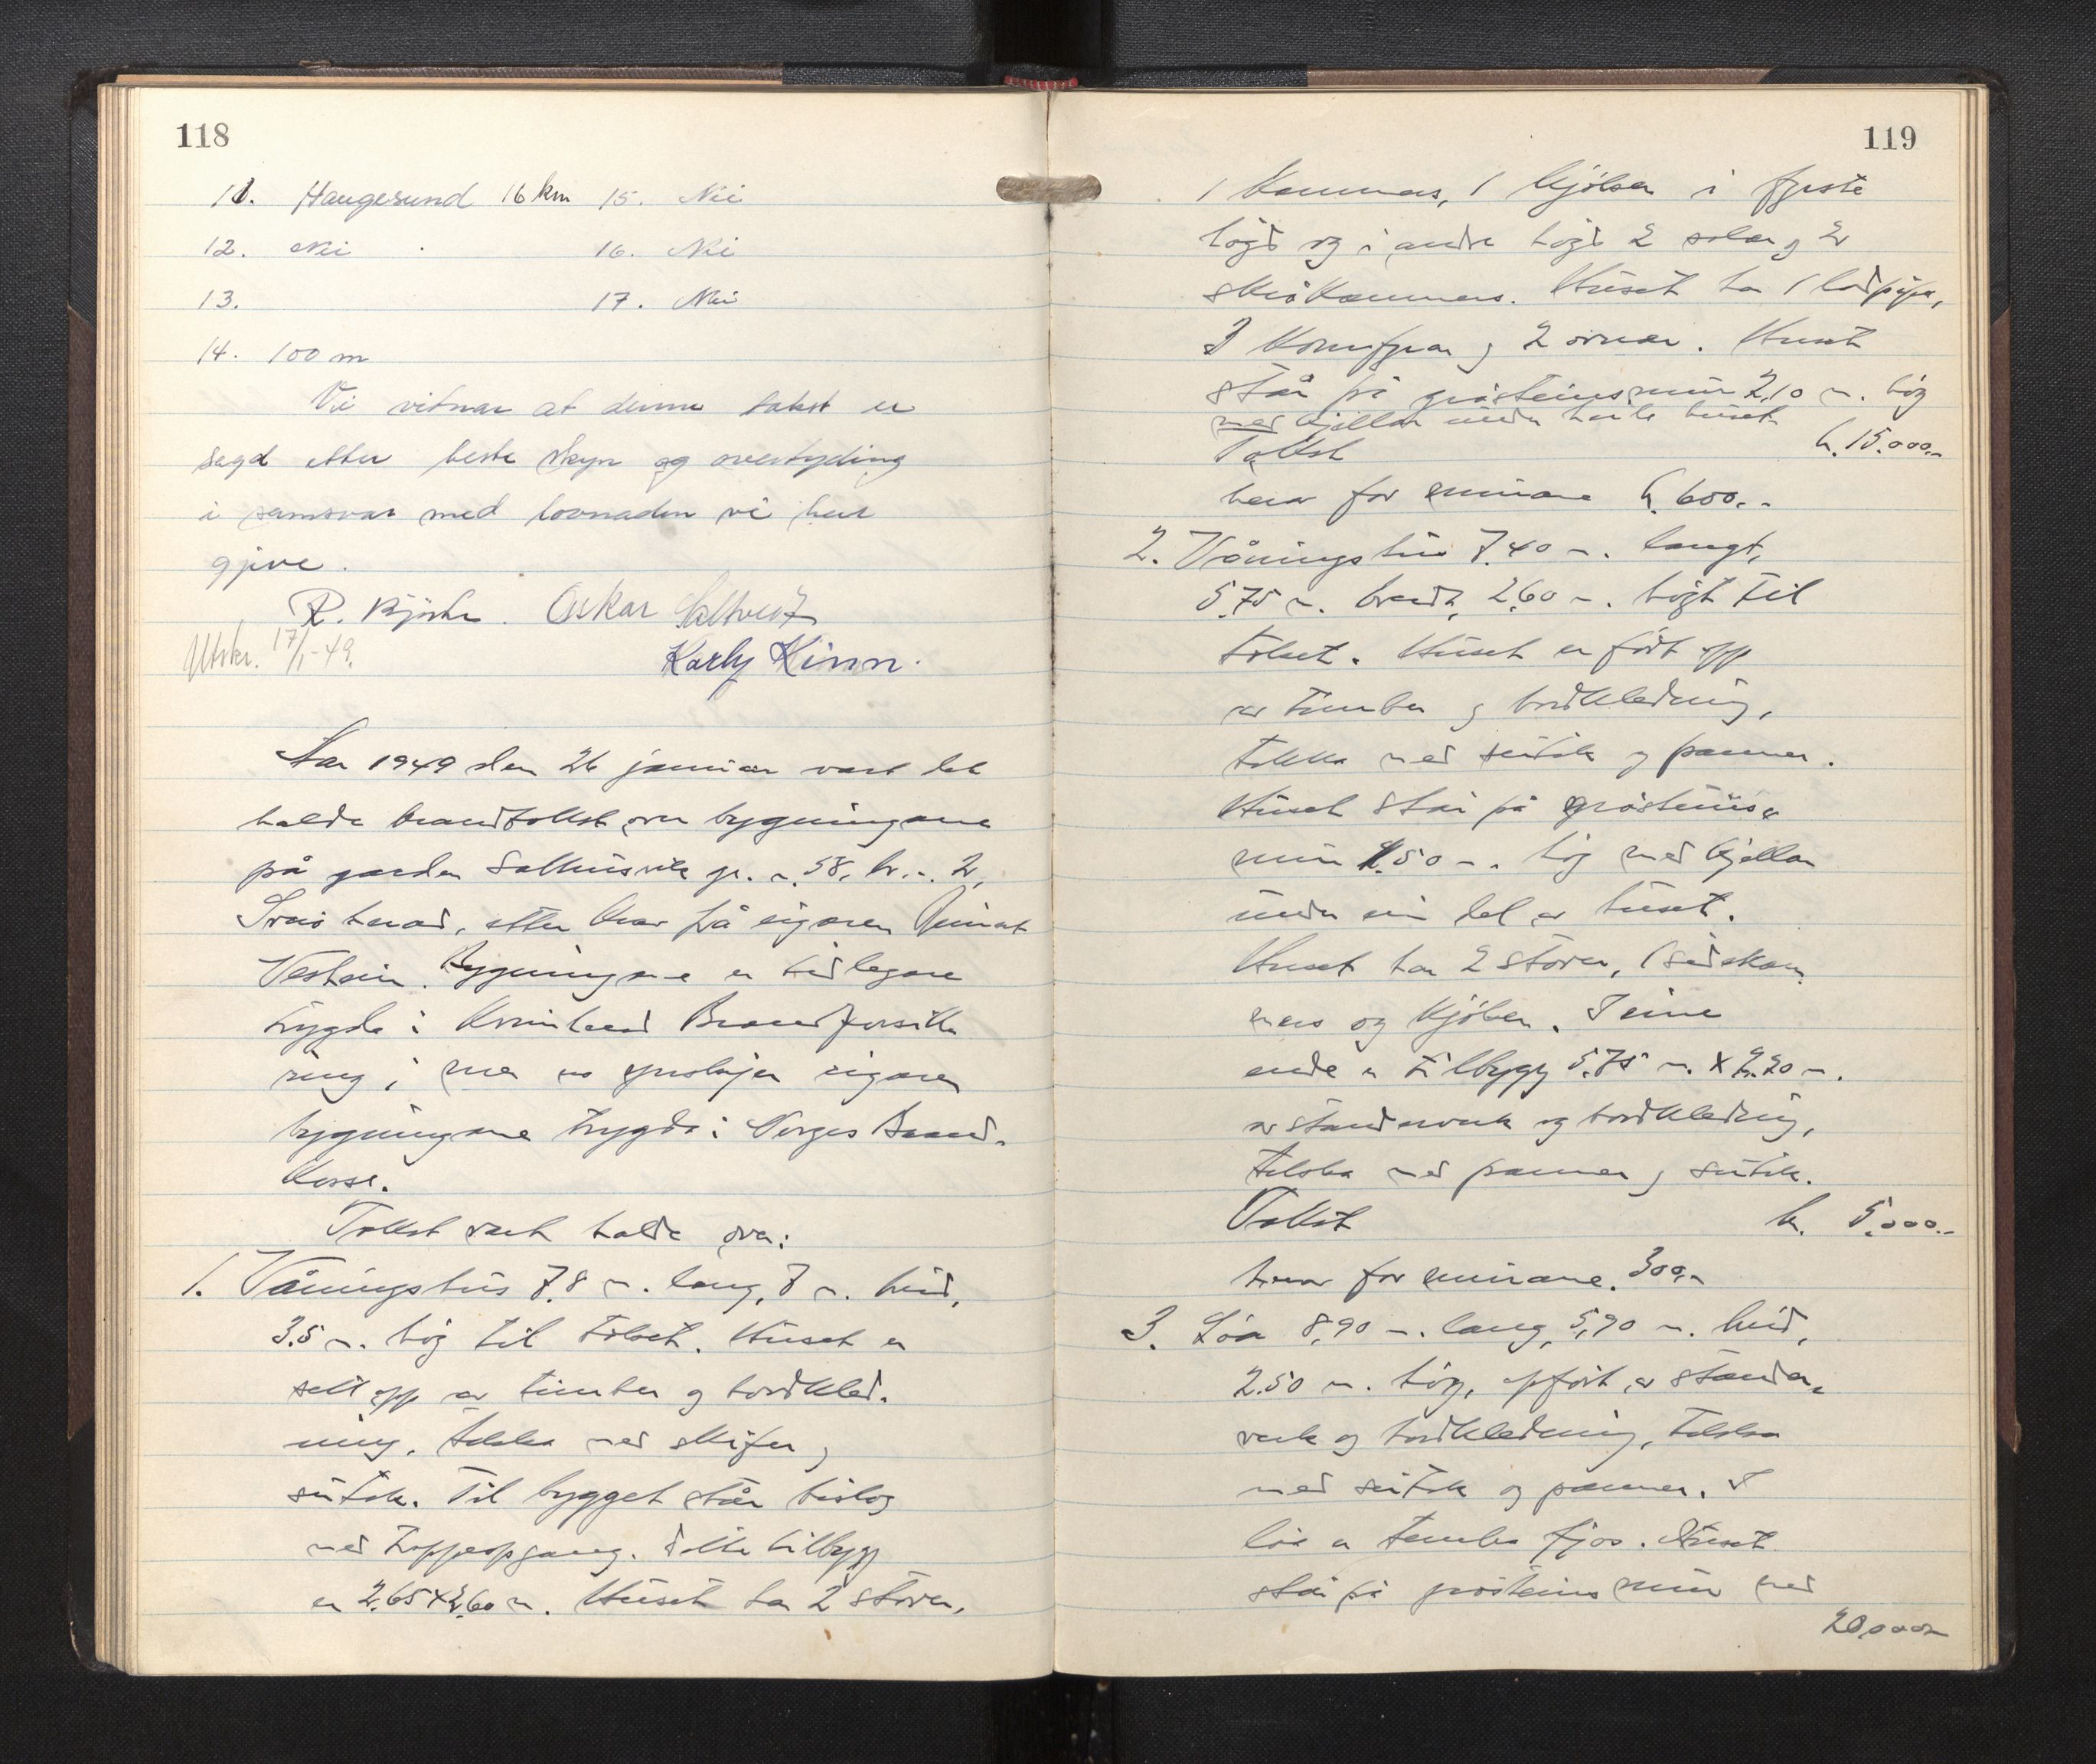 118
11. Haugesund 16 km 15. Nei
12. Nei 16. Nei
13. 17. Nei
14. 100 m
Vi vitnar at denne takst er
sagd etter beste skyn og overtyding
i samsvar med lovnaden vi har
gjeve.
R. Oskar
Utskr. 17/1-49. Karly Kinn.
Aar 1949 den 26 januar vart det
halde brandtakst over bygningane
på garden Salhusvik gr. n. 58, br. n. 2,
herad, etter krav frå eigaren
Bygningane er tidlegare
trygda i Brandforsikk
ring, men no ynskjer eigaren
bygningane trygda i Norges Brand-
kasse.
Takst vart halde over:
1. Våningshus 7.8 m. lang, 7 m. breid,
3.5 m. høg til taket. Huset er
sett opp av timber og bordkled-
ning, tekka med skifer og
sutak. Til bygget står bislag
med trappeopgang. Dette tilbygg
er 2.65 x 2.60 m. Huset har 2 stover,
119
1 kammers, 1 kjøken i fyrste
høgd og i andre høgd 2 salar og 2
skråkammers. Huset har 1 ladpipe,
3 komfyrar og 2 omnar. Huset
står på gråsteinsmur 2,10 m. høg
med kjellar under heile huset
Takst kr. 15.000.-
herav for murane kr. 600.-
2. Våningshus 7.40 m. langt,
5.75 m. breidt, 2.60 m. høgt til
taket. Huset er ført opp
av timber og bordkledning,
tekka med sutak og panner.
Huset står på gråsteins-
mur 1.50 m. høg med kjellar
under ein del av huset.
Huset har 2 stover, 1 sidekam-
mers og kjøken. I eine
ende er tilbygg 5.75 m. x 2.20 m.
av standarverk og bordkledning,
tekka med panner og sutak.
Takst kr. 5.000.-
herav for murane. 300.-
3. Løa 8,90 m. lang, 5,90 m. breid,
2.50 m. høg, opført av standar-
verk og bordkledning, tekka
med sutak og panner. I
løa er timbra fjos. Huset
står på gråsteinsmur med
20.000.-